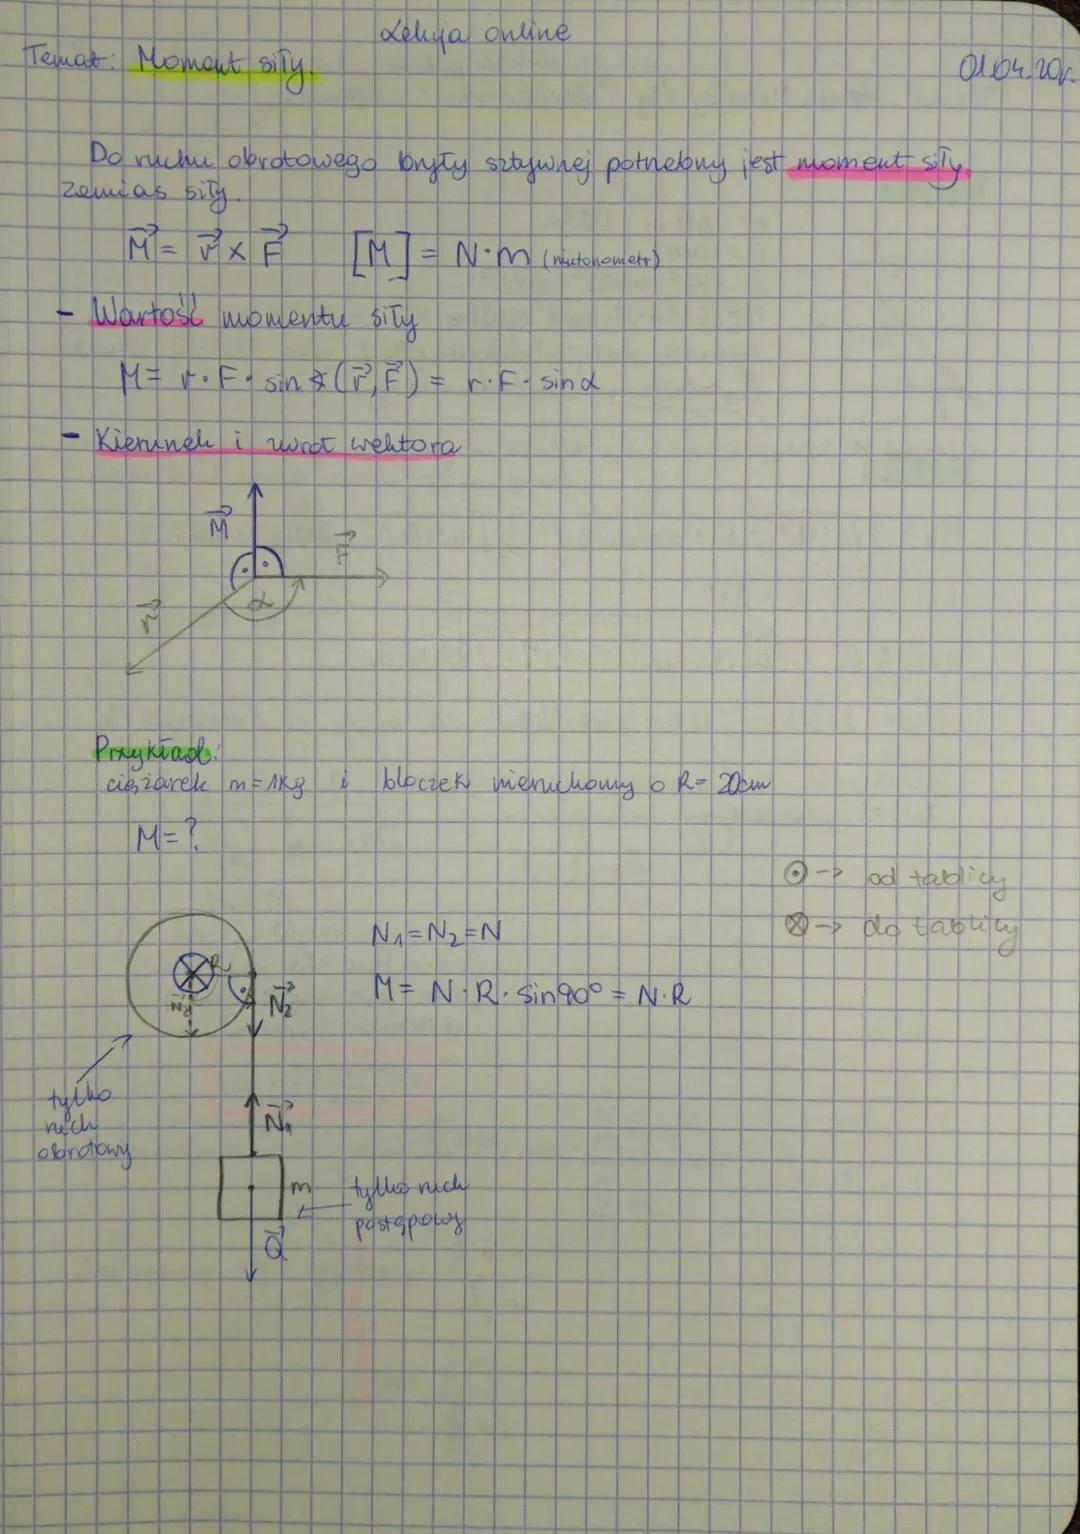 Lekcja online
Temat: Moment siły. 01.04.20r.
Do ruchu obrotowego bryły sztywnej potrzebny jest moment siły
zamias siły.
M⃗ = r⃗ × F⃗ [M] = N·m (niutonometr)
- Wartość momentu siły
M = r · F · sin ∢ (r⃗, F⃗) = r · F · sin α
- Kierunek i zwrot wektora
M⃗
F⃗
α
r⃗
Przykład:
ciężarek m = 1kg i bloczek nieruchomy o R = 20cm
M = ?
⊙ -> od tablicy
⊗ -> do tablicy
N₁ = N₂ = N
M = N · R · sin 90° = N · R
R
N⃗₂
tylko
ruch
obrotowy
N⃗₁
m
tylko ruch
postępowy
Q⃗